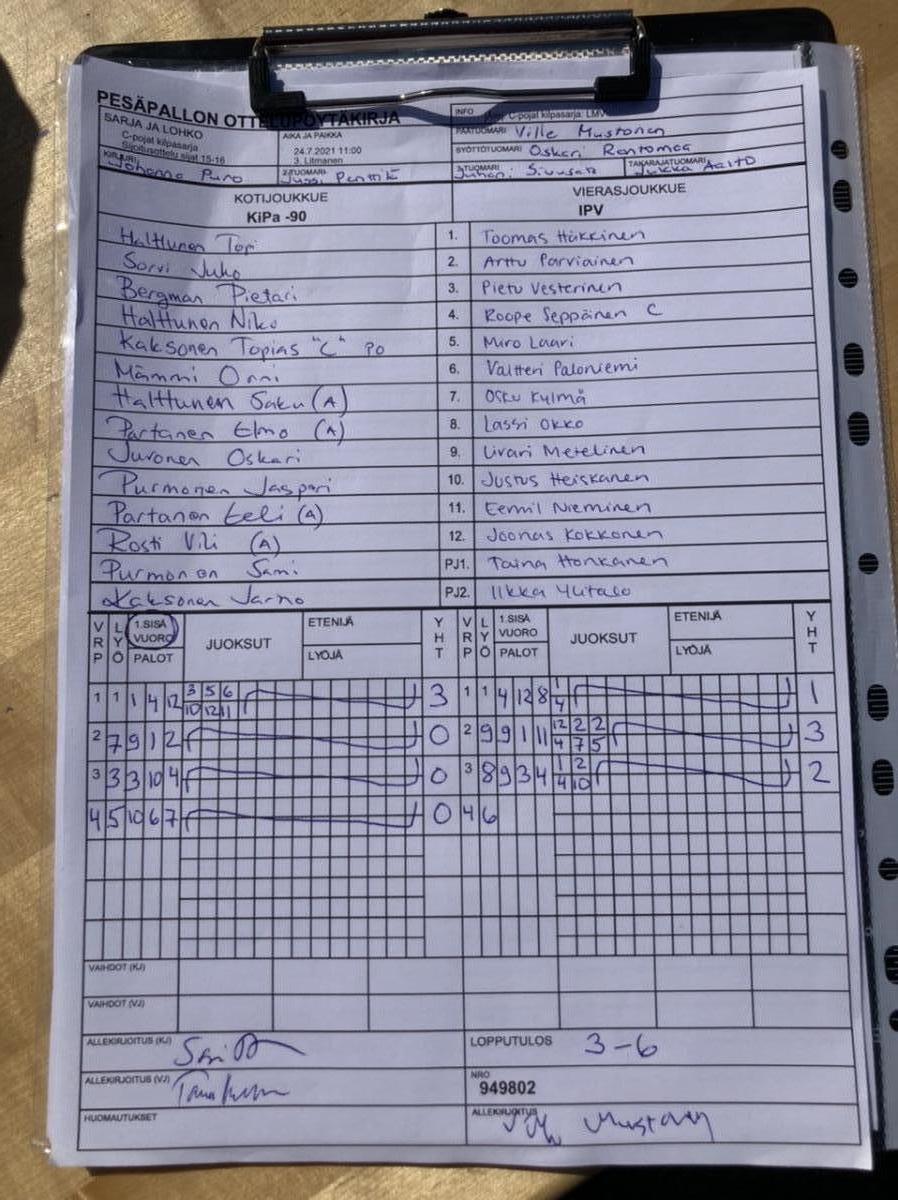 PESÄPALLON OTTELUPÖYTÄKIRJA
SARJA JA LOHKO
C-pojat kilpasarja
Sijoitusottelu sijat 15-16
AIKA JA PAIKKA
24.7.2021 11:00
3. Litmanen
INFO
C-pojat kilpasarja: LMV
PÄÄTUOMARI Ville Mustonen
SYÖTTÖTUOMARI Oskari Rantomaa
KIRJURI Johanna Puro
2-TUOMARI Jussi Penttilä
3-TUOMARI Juhani
TAKARAJATUOMARI Jukka Aalto
KOTIJOUKKUE
KiPa -90
VIERASJOUKKUE
IPV
Halttunen Topi 1. Toomas Häkkinen
Sorvi Juho 2. Arttu Parviainen
Bergman Pietari 3. Pietu Vesterinen
Halttunen Niko 4. Roope Seppäinen C
Kaksonen Topias "C" PO 5. Miro Laari
Mämmi Onni 6. Valtteri Paloniemi
Halttunen Saku (A) 7. Osku Kylmä
Partanen Elmo (A) 8. Lassi Okko
Juvonen Oskari 9. Iivari Metelinen
Purmonen Jaspari 10. Justus Heiskanen
Partanen Eeli (A) 11. Eemil Nieminen
Rosti Vili (A) 12. Joonas Kokkonen
Purmonen Sami PJ1. Taina Honkanen
Kaksonen Jarno PJ2. Ilkka Ylitalo
VRP LYÖ 1.SISÄ VUORO PALOT JUOKSUT ETENIJÄ LYÖJÄ YHT VRP LYÖ 1.SISÄ VUORO PALOT JUOKSUT ETENIJÄ LYÖJÄ YHT
1 1 1 4 12 3 5 6 3 1 1 4 12 8 1 1
10 12 11 4
2 7 9 1 2 0 2 9 9 1 11 12 2 2 3
4 7 5
3 3 3 10 4 0 3 8 9 3 4 1 2 2
4 10
4 5 10 6 7 0 4 6
VAIHDOT (KJ)
VAIHDOT (VJ)
ALLEKIRJOITUS (KJ)
LOPPUTULOS 3-6
ALLEKIRJOITUS (VJ)
NRO
949802
HUOMAUTUKSET
ALLEKIRJOITUS Mustonen